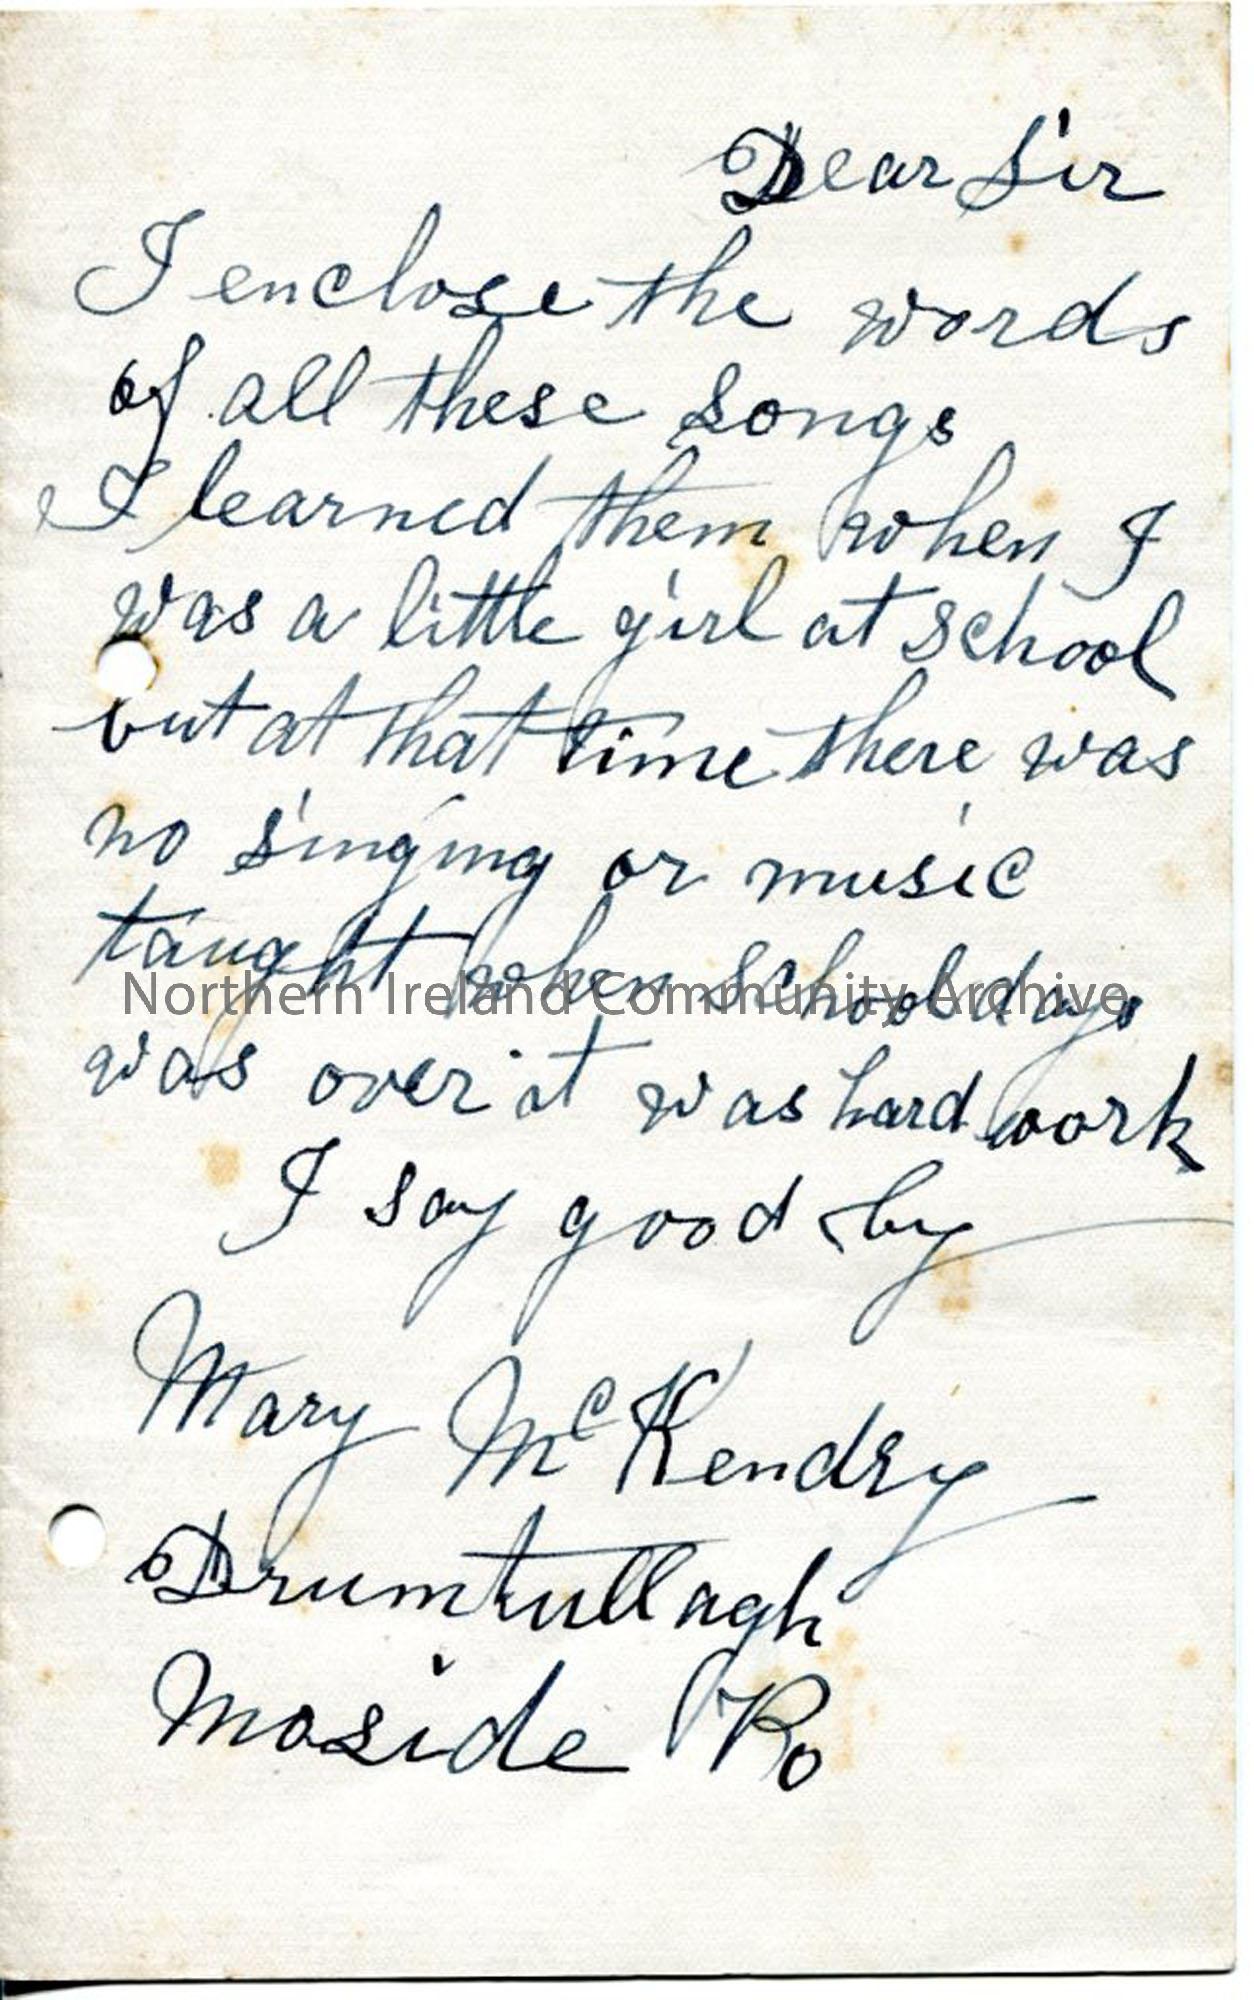 Dear Sir
I enclose the words
of all these songs
I learned them when I
was a little girl at school
but at that time there was
no singing or music
taught when schooldays
Northern Ireland Community Archive
was over it was hard work
I say good by
Mary McKendry
Drumtullagh
Moside Po